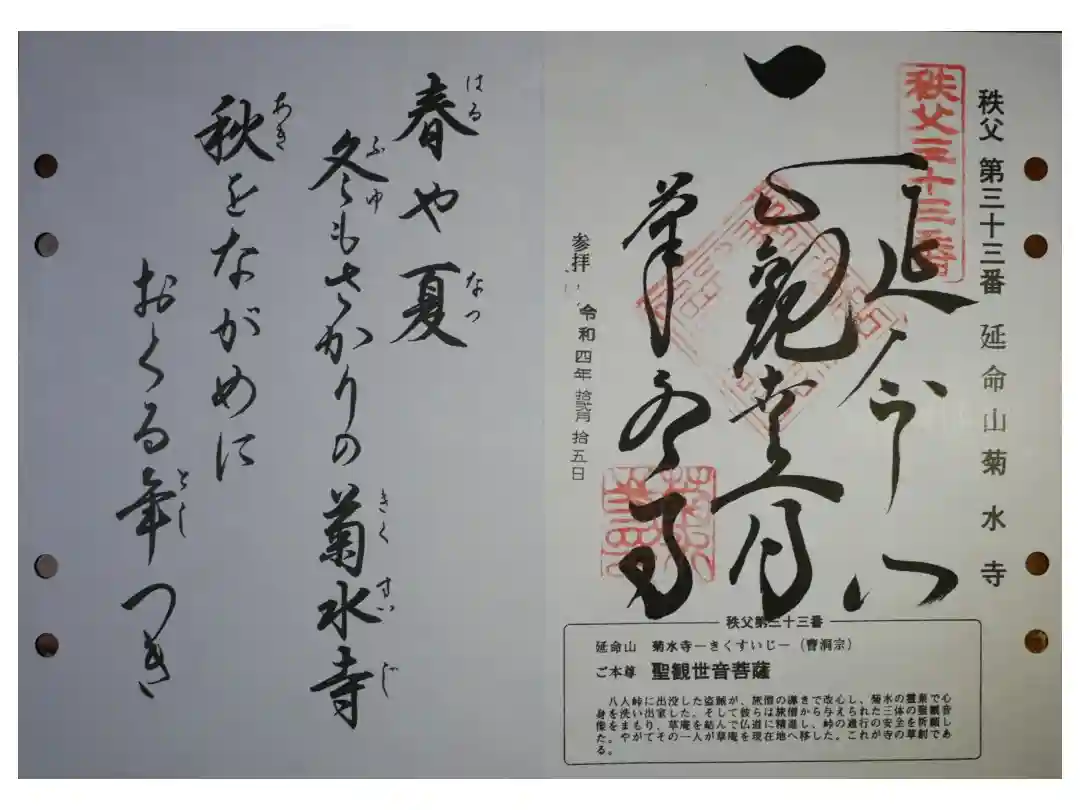 秩父 第三十三番 延命山菊水寺
秩父三十三番
延命山
菊水寺
参拝 令和四年拾弐月拾五日
秩父第三十三番
延命山 菊水寺－きくすいじ－（曹洞宗）
ご本尊 聖観世音菩薩
八人峠に出没した盗賊が、旅僧の導きで改心し、菊水の霊泉で心
身を洗い出家した。そして彼らは旅僧から与えられた三体の聖観音
像をまもり、草庵を結んで仏道に精進し、峠の通行の安全を祈願し
た。やがてその一人が草庵を現在地へ移した。これが寺の草創であ
る。
春や夏
はる
なつ
冬もさかりの菊水寺
ふゆ
きくすいじ
秋をながめに
あき
おくる年つき
とし